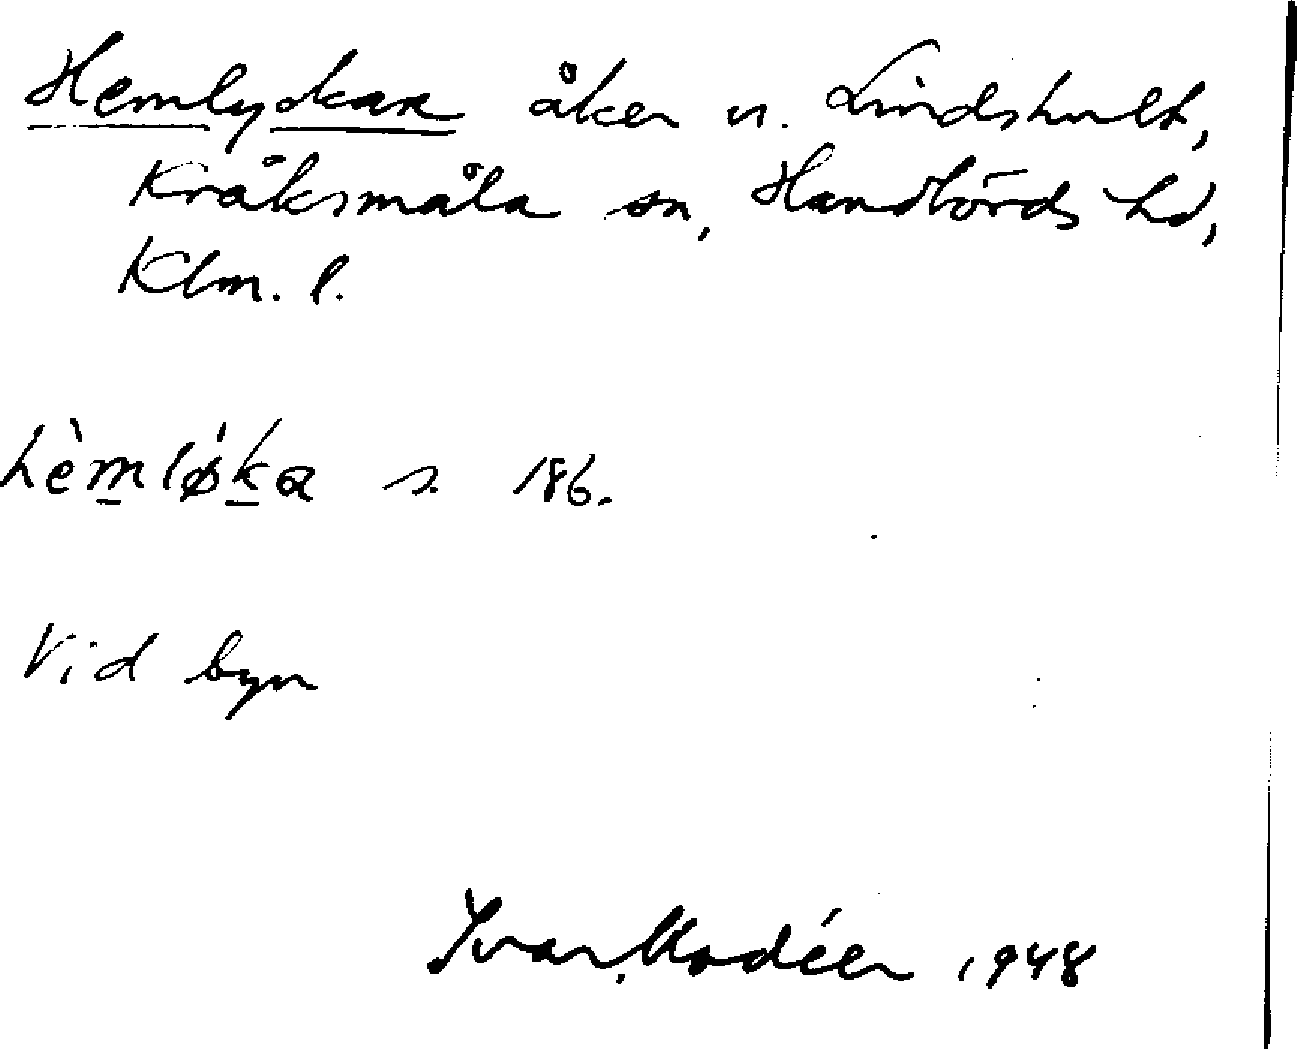 Hemlyckan åker n. Lindshult,
Kråksmåla sn, Handbörds hd,
Klm. l.
hèmlø̀ka s. 186.
Vid byn
Ivar Modéer 1948